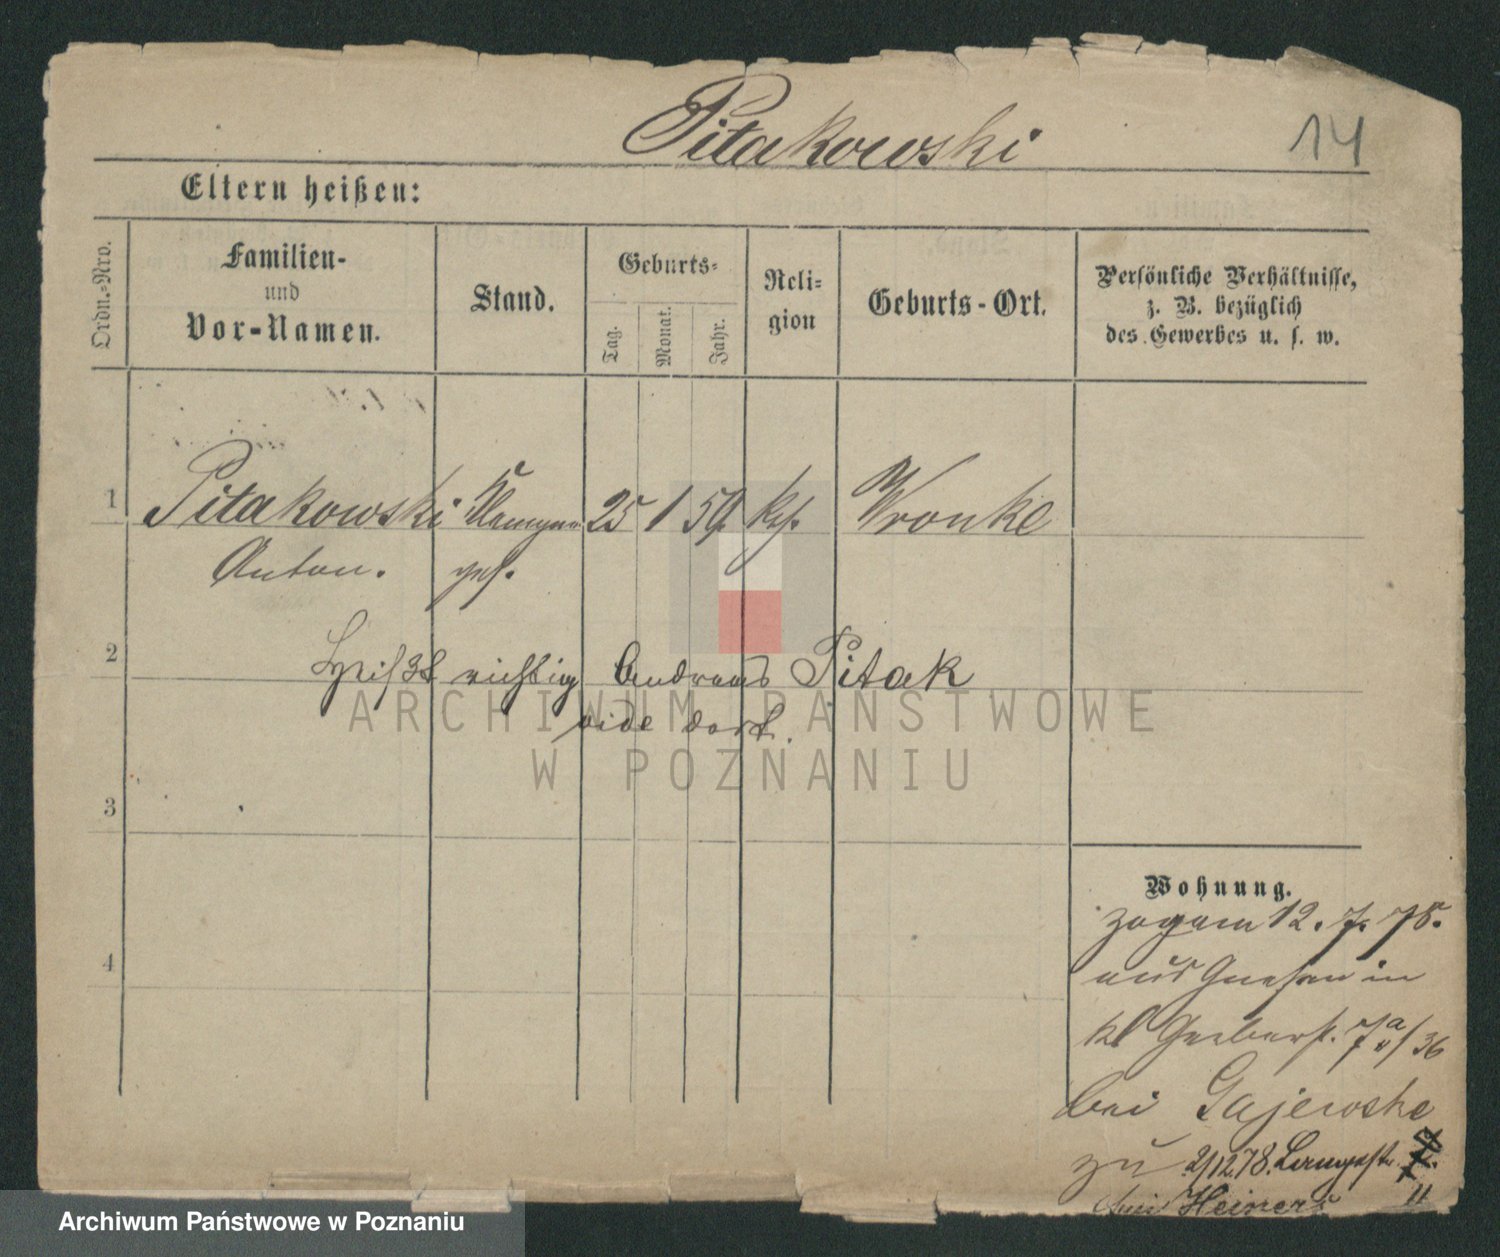 Pitakowski
14
Eltern heißen:
Ordn.-Nro.
Familien-
und
Vor-Namen.
Stand.
Geburts-
Tag.
Monat.
Jahr.
Reli-
gion
Geburts-Ort.
Persönliche Verhältnisse,
z. B. bezüglich
des Gewerbes u. s. w.
1
Pitakowski Klempner 25 1 59 kath. Wronke
Anton. ges.
2
heißt richtig Andreas Pitak
vide dort.
3
4
Wohnung.
zog am 12. 7. 78.
aus Gnesen in
kl Gerberst. 7a/36
bei Gajewska
zu 2/12 78. Langestr.
bei Heiners 11
ARCHIWUM PAŃSTWOWE
W POZNANIU
Archiwum Państwowe w Poznaniu